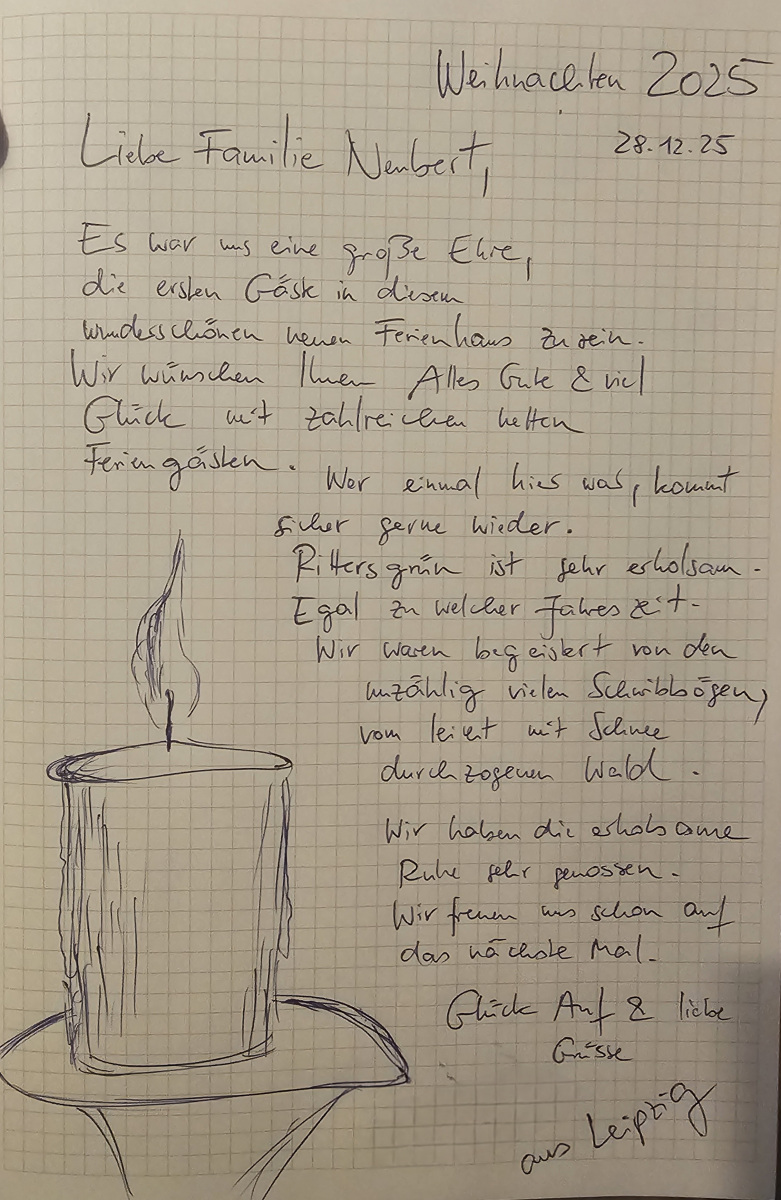 Weihnachten 2025
28.12.25
Liebe Familie Neubert,
Es war uns eine große Ehre,
die ersten Gäste in diesem
wunderschönen neuen Ferienhaus zu sein.
Wir wünschen Ihnen Alles Gute & viel
Glück mit zahlreichen netten
Feriengästen.
Wer einmal hier war, kommt
sicher gerne wieder.
Rittersgrün ist sehr erholsam.
Egal zu welcher Jahreszeit.
Wir waren begeistert von den
unzählig vielen Schwibbögen,
vom leicht mit Schnee
durchzogenen Wald.
Wir haben die erholsame
Ruhe sehr genossen.
Wir freuen uns schon auf
das nächste Mal.
Glück Auf & liebe
Grüsse
aus Leipzig